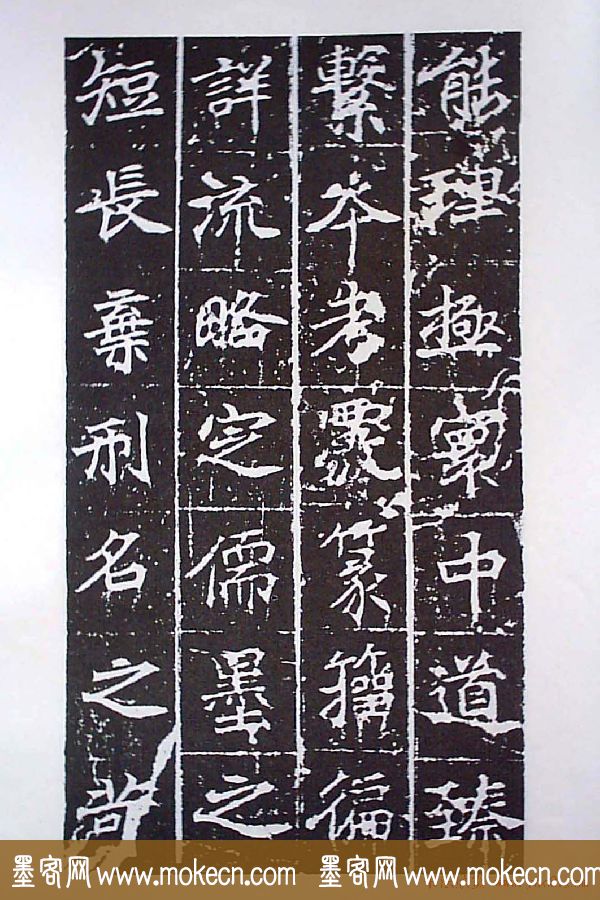 能理極寰中道臻
繫夲考覈篆籀徧
詳流略定儒墨之
短長棄刑名之苛
墨客网 www.mokecn.com 墨客网 www.mokecn.com